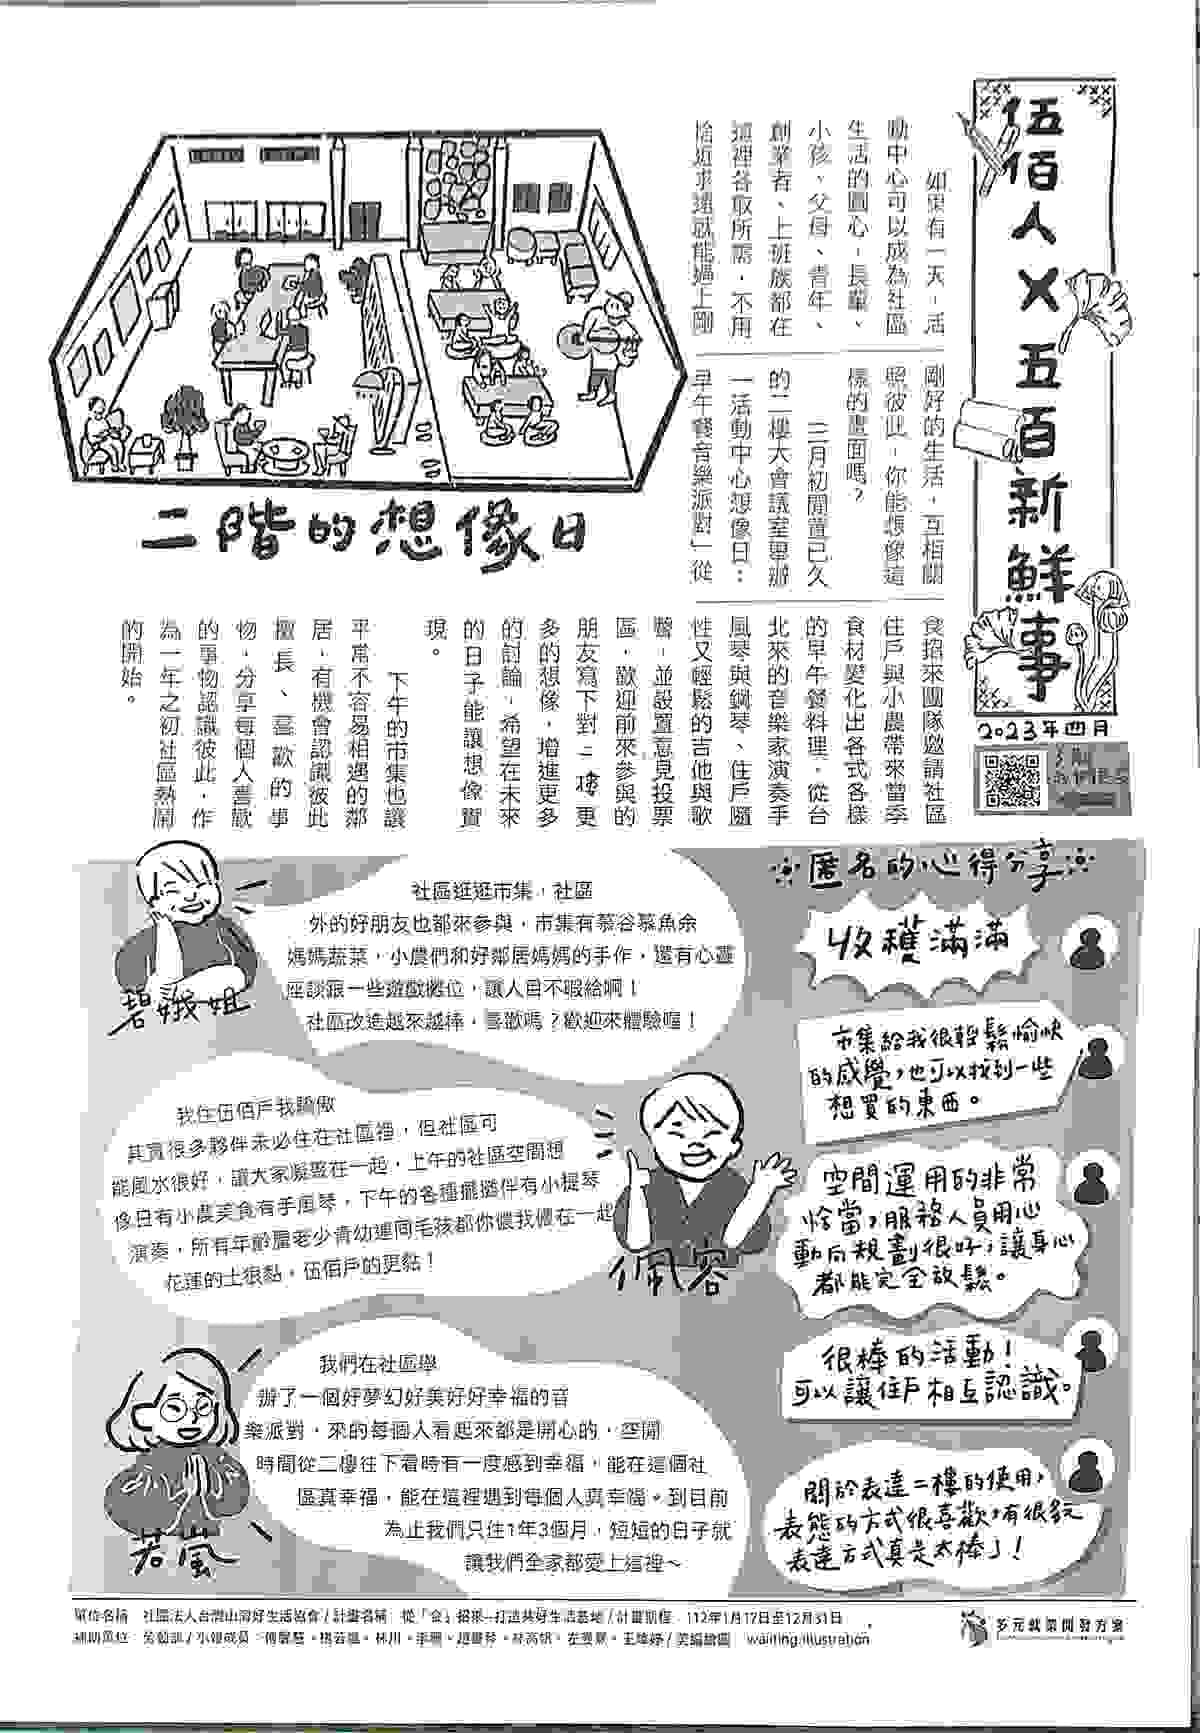 伍佰人×五百新鮮事
2023年四月
如果有一天，活
動中心可以成為社區
生活的圓心，長輩、
小孩、父母、青年、
創業者、上班族都在
這裡各取所需，不用
捨近求遠就能過上剛
剛好的生活，互相關
照彼此，你能想像這
樣的畫面嗎？
三月初閒置已久
的二樓大會議室舉辦
一活動中心想像日：
早午餐音樂派對」從
食招來團隊邀請社區
住戶與小農帶來當季
食材變化出各式各樣
的早午餐料理，從台
北來的音樂家演奏手
風琴與鋼琴、住戶隨
性又輕鬆的吉他與歌
聲，並設置意見投票
區，歡迎前來參與的
朋友寫下對二樓更
多的想像，增進更多
的討論，希望在未來
的日子能讓想像實
現。
下午的市集也讓
平常不容易相遇的鄰
居，有機會認識彼此
擅長、喜歡的事
物，分享每個人喜歡
的事物認識彼此，作
為一年之初社區熱鬧
的開始。
二階的想像日
社區逛逛市集，社區
外的好朋友也都來參與，市集有慕谷慕魚余
媽媽蔬菜，小農們和好鄰居媽媽的手作，還有心靈
座談跟一些遊戲攤位，讓人目不暇給啊！
社區改造越來越棒，喜歡嗎？歡迎來體驗喔！
碧娥姐
我住伍佰戶我驕傲
其實很多夥伴未必住在社區裡，但社區可
能風水很好，讓大家凝聚在一起，上午的社區空間想
像日有小農美食有手風琴，下午的各種攤攤伴有小提琴
演奏，所有年齡層老少青幼連同毛孩都你儂我儂在一起
花蓮的土很黏，伍佰戶的更黏！
佩容
我們在社區舉
辦了一個好夢幻好美好好幸福的音
樂派對，來的每個人看起來都是開心的，空閒
時間從二樓往下看時有一度感到幸福，能在這個社
區真幸福，能在這裡遇到每個人真幸福。到目前
為止我們只住1年3個月，短短的日子就
讓我們全家都愛上這裡～
若嵐
匿名的心得分享
收穫滿滿
市集給我很輕鬆愉快
的感覺，也可以找到一些
想買的東西。
空間運用的非常
恰當，服務人員用心
動向規劃很好，讓身心
都能完全放鬆。
很棒的活動！
可以讓住戶相互認識。
關於表達二樓的使用，
表態的方式很喜歡，有很多元
表達方式真是太棒了！
單位名稱　社團法人台灣山灣好生活協會/計畫名稱　從「食」招來—打造共好生活基地/計畫期程　112年1月17日至12月31日
補助單位　勞動部/小報成員
美編繪圖　waiting.illustration
多元就業開發方案